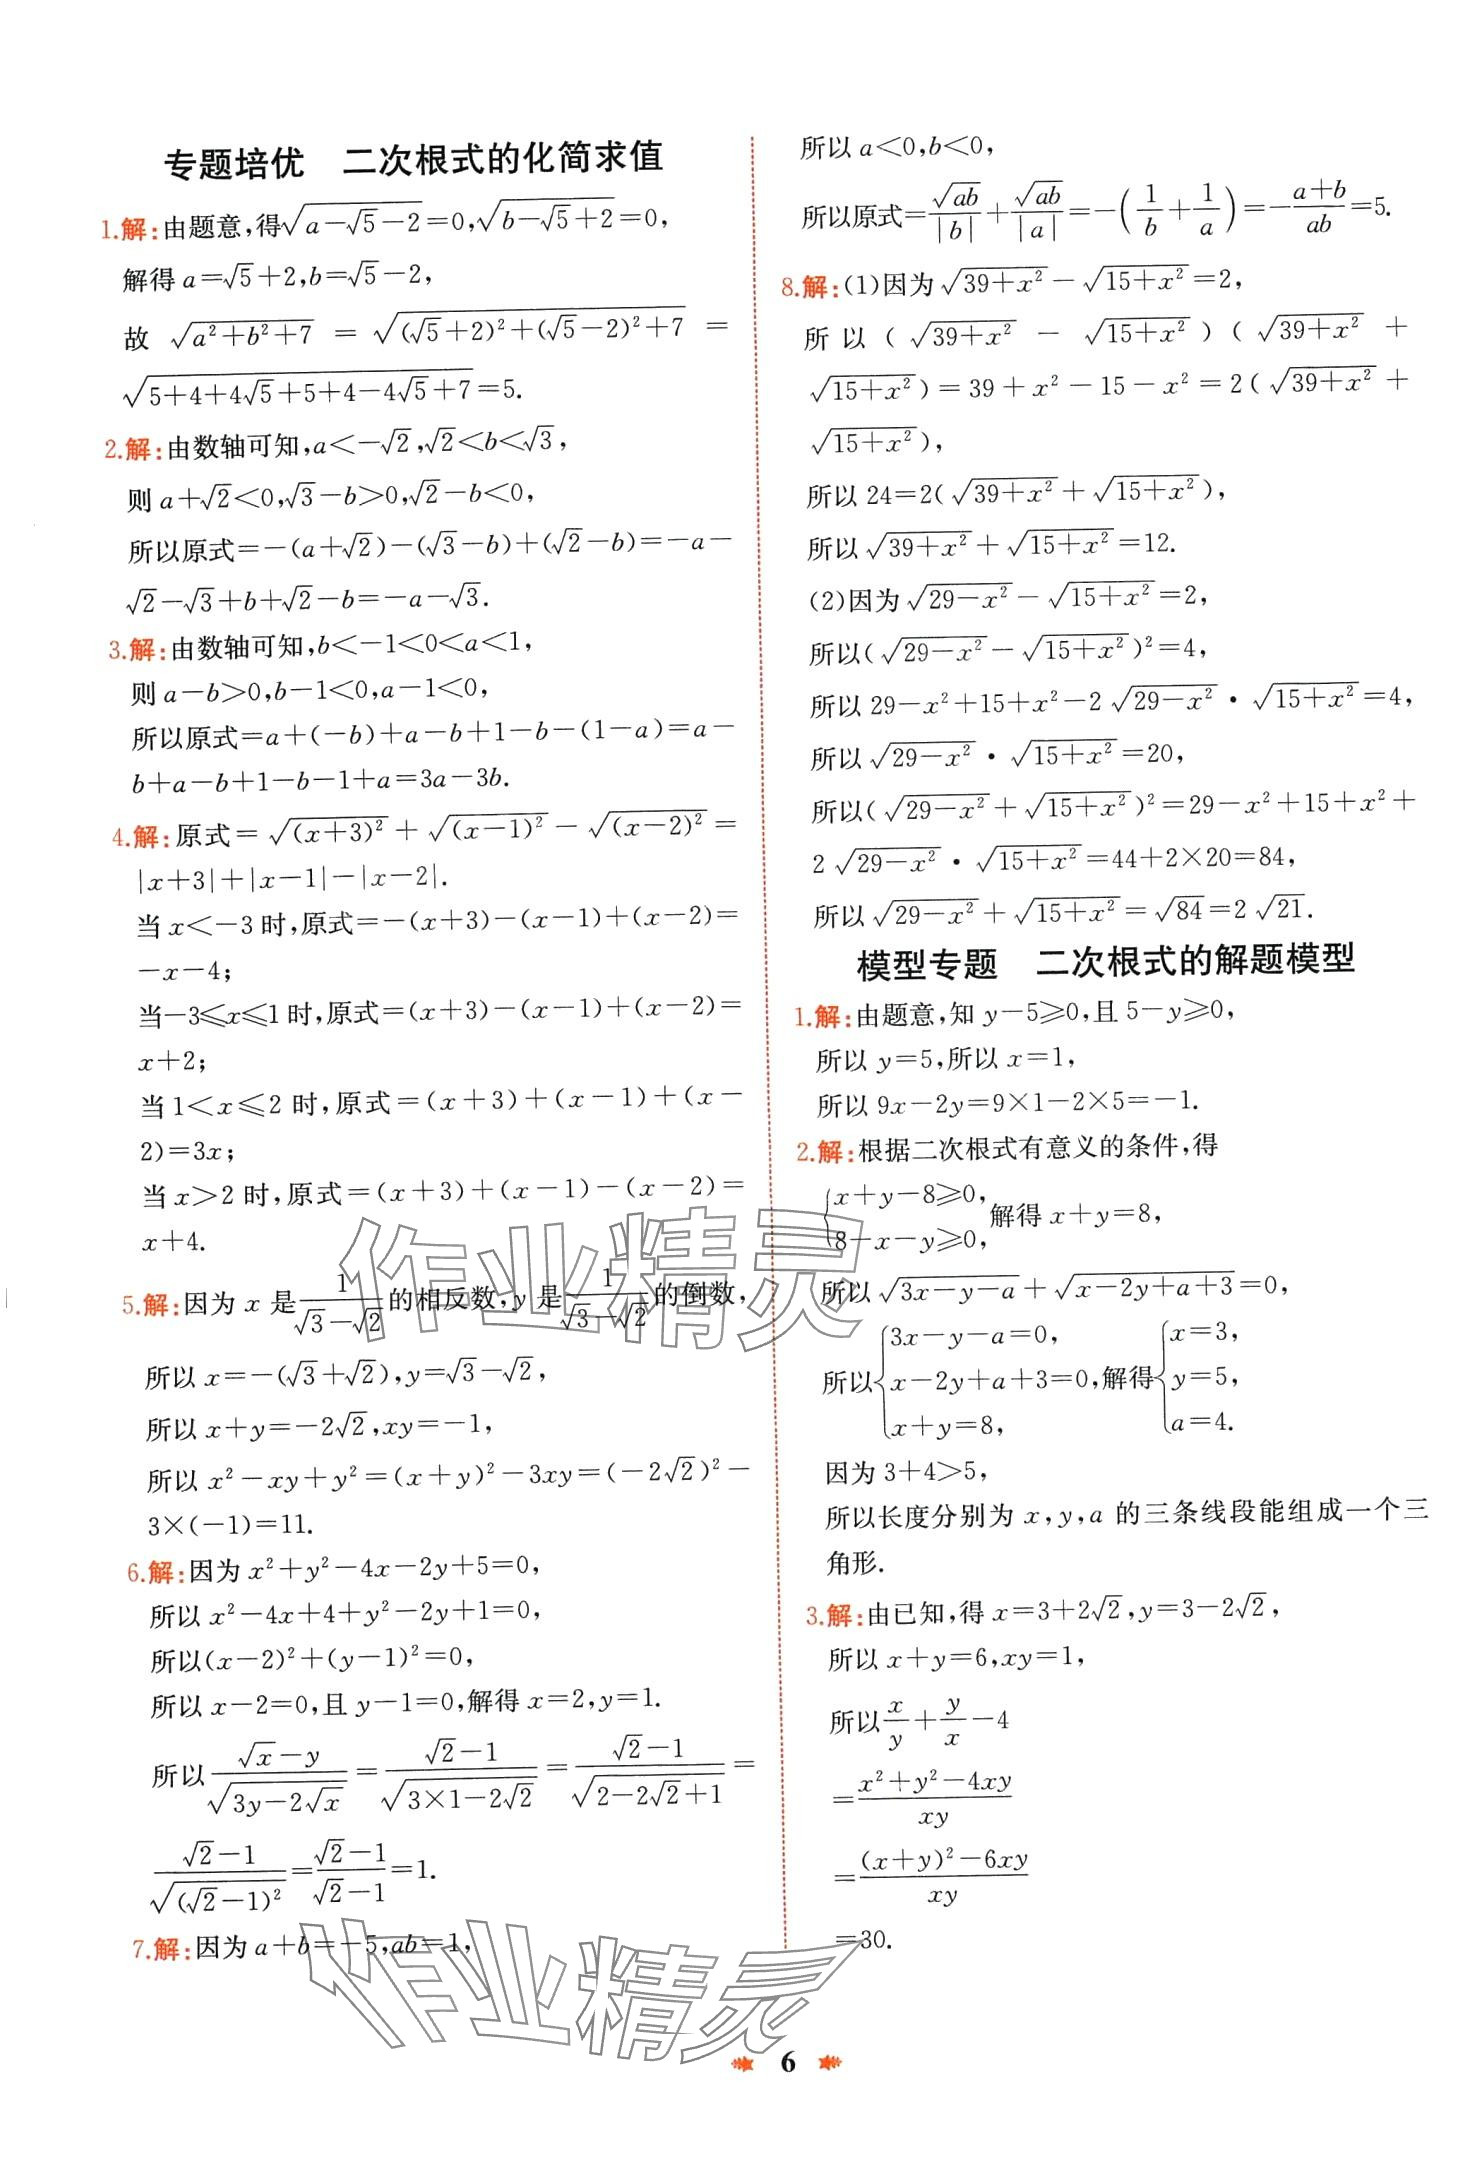 专题培优　二次根式的化简求值
1.解:由题意,得√(a－√5－2)＝0,√(b－√5＋2)＝0,
解得 a＝√5＋2,b＝√5－2,
故 √(a²＋b²＋7) ＝ √((√5＋2)²＋(√5－2)²＋7) ＝
√(5＋4＋4√5＋5＋4－4√5＋7)＝5.
2.解:由数轴可知,a＜－√2,√2＜b＜√3,
则 a＋√2＜0,√3－b＞0,√2－b＜0,
所以原式＝－(a＋√2)－(√3－b)＋(√2－b)＝－a－
√2－√3＋b＋√2－b＝－a－√3.
3.解:由数轴可知,b＜－1＜0＜a＜1,
则 a－b＞0,b－1＜0,a－1＜0,
所以原式＝a＋(－b)＋a－b＋1－b－(1－a)＝a－
b＋a－b＋1－b－1＋a＝3a－3b.
4.解:原式＝√((x＋3)²)＋√((x－1)²)－√((x－2)²)＝
|x＋3|＋|x－1|－|x－2|.
当 x＜－3 时,原式＝－(x＋3)－(x－1)＋(x－2)＝
－x－4;
当－3≤x≤1 时,原式＝(x＋3)－(x－1)＋(x－2)＝
x＋2;
当 1＜x≤2 时,原式＝(x＋3)＋(x－1)＋(x－
2)＝3x;
当 x＞2 时,原式＝(x＋3)＋(x－1)－(x－2)＝
x＋4.
5.解:因为 x 是 1/(√3－√2) 的相反数,y 是 1/(√3－√2) 的倒数,
所以 x＝－(√3＋√2),y＝√3－√2,
所以 x＋y＝－2√2,xy＝－1,
所以 x²－xy＋y²＝(x＋y)²－3xy＝(－2√2)²－
3×(－1)＝11.
6.解:因为 x²＋y²－4x－2y＋5＝0,
所以 x²－4x＋4＋y²－2y＋1＝0,
所以(x－2)²＋(y－1)²＝0,
所以 x－2＝0,且 y－1＝0,解得 x＝2,y＝1.
所以 (√x－y)/√(3y－2√x)＝(√2－1)/√(3×1－2√2)＝(√2－1)/√(2－2√2＋1)＝
(√2－1)/√((√2－1)²)＝(√2－1)/(√2－1)＝1.
7.解:因为 a＋b＝－5,ab＝1,
所以 a＜0,b＜0,
所以原式＝√(ab)/|b|＋√(ab)/|a|＝－(1/b＋1/a)＝－(a＋b)/ab＝5.
8.解:(1)因为 √(39＋x²)－√(15＋x²)＝2,
所以(√(39＋x²) － √(15＋x²))(√(39＋x²) ＋
√(15＋x²))＝39＋x²－15－x²＝2(√(39＋x²)＋
√(15＋x²)),
所以 24＝2(√(39＋x²)＋√(15＋x²)),
所以 √(39＋x²)＋√(15＋x²)＝12.
(2)因为 √(29－x²)－√(15＋x²)＝2,
所以(√(29－x²)－√(15＋x²))²＝4,
所以 29－x²＋15＋x²－2√(29－x²)·√(15＋x²)＝4,
所以 √(29－x²)·√(15＋x²)＝20,
所以(√(29－x²)＋√(15＋x²))²＝29－x²＋15＋x²＋
2√(29－x²)·√(15＋x²)＝44＋2×20＝84,
所以 √(29－x²)＋√(15＋x²)＝√84＝2√21.
模型专题　二次根式的解题模型
1.解:由题意,知 y－5≥0,且 5－y≥0,
所以 y＝5,所以 x＝1,
所以 9x－2y＝9×1－2×5＝－1.
2.解:根据二次根式有意义的条件,得
{x＋y－8≥0,
8－x－y≥0, 解得 x＋y＝8,
所以 √(3x－y－a)＋√(x－2y＋a＋3)＝0,
所以{3x－y－a＝0, x－2y＋a＋3＝0, x＋y＝8, 解得{x＝3, y＝5, a＝4.
因为 3＋4＞5,
所以长度分别为 x,y,a 的三条线段能组成一个三
角形.
3.解:由已知,得 x＝3＋2√2,y＝3－2√2,
所以 x＋y＝6,xy＝1,
所以 x/y＋y/x－4
＝(x²＋y²－4xy)/xy
＝((x＋y)²－6xy)/xy
＝30.
作业精灵
作业精灵
6